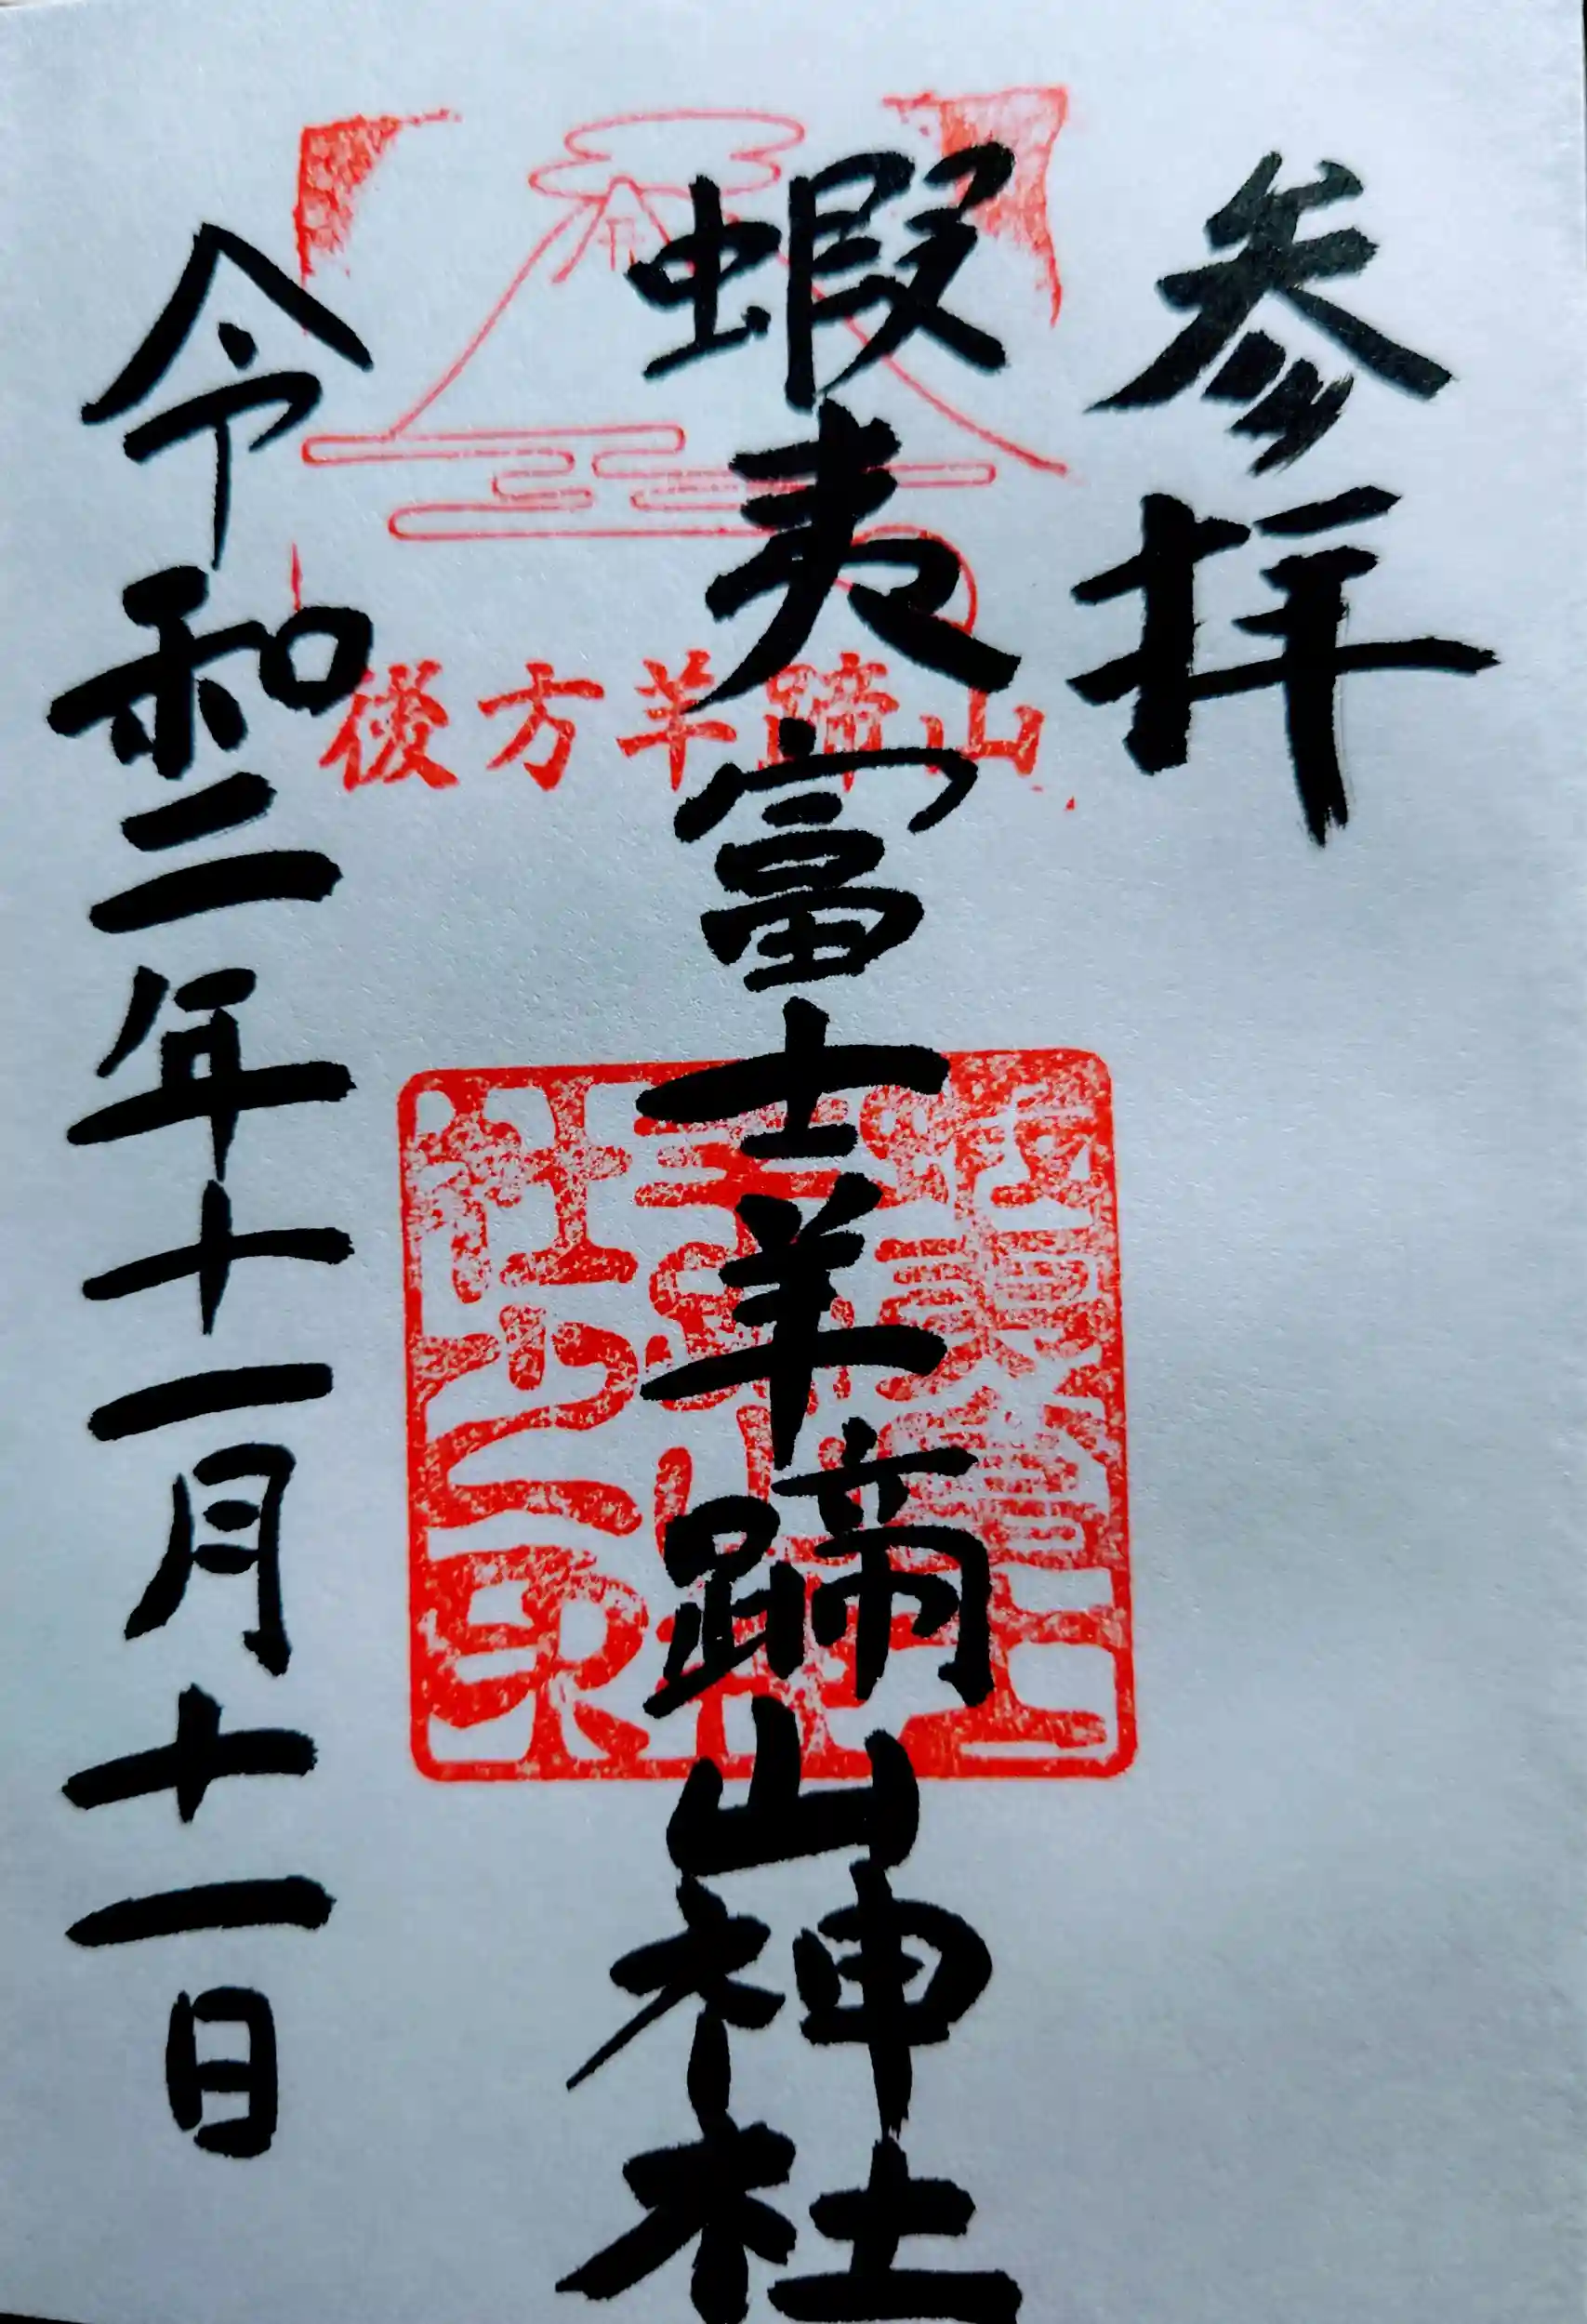 参拝
蝦夷富士羊蹄山神社
令和二年十一月十一日
後方羊蹄山